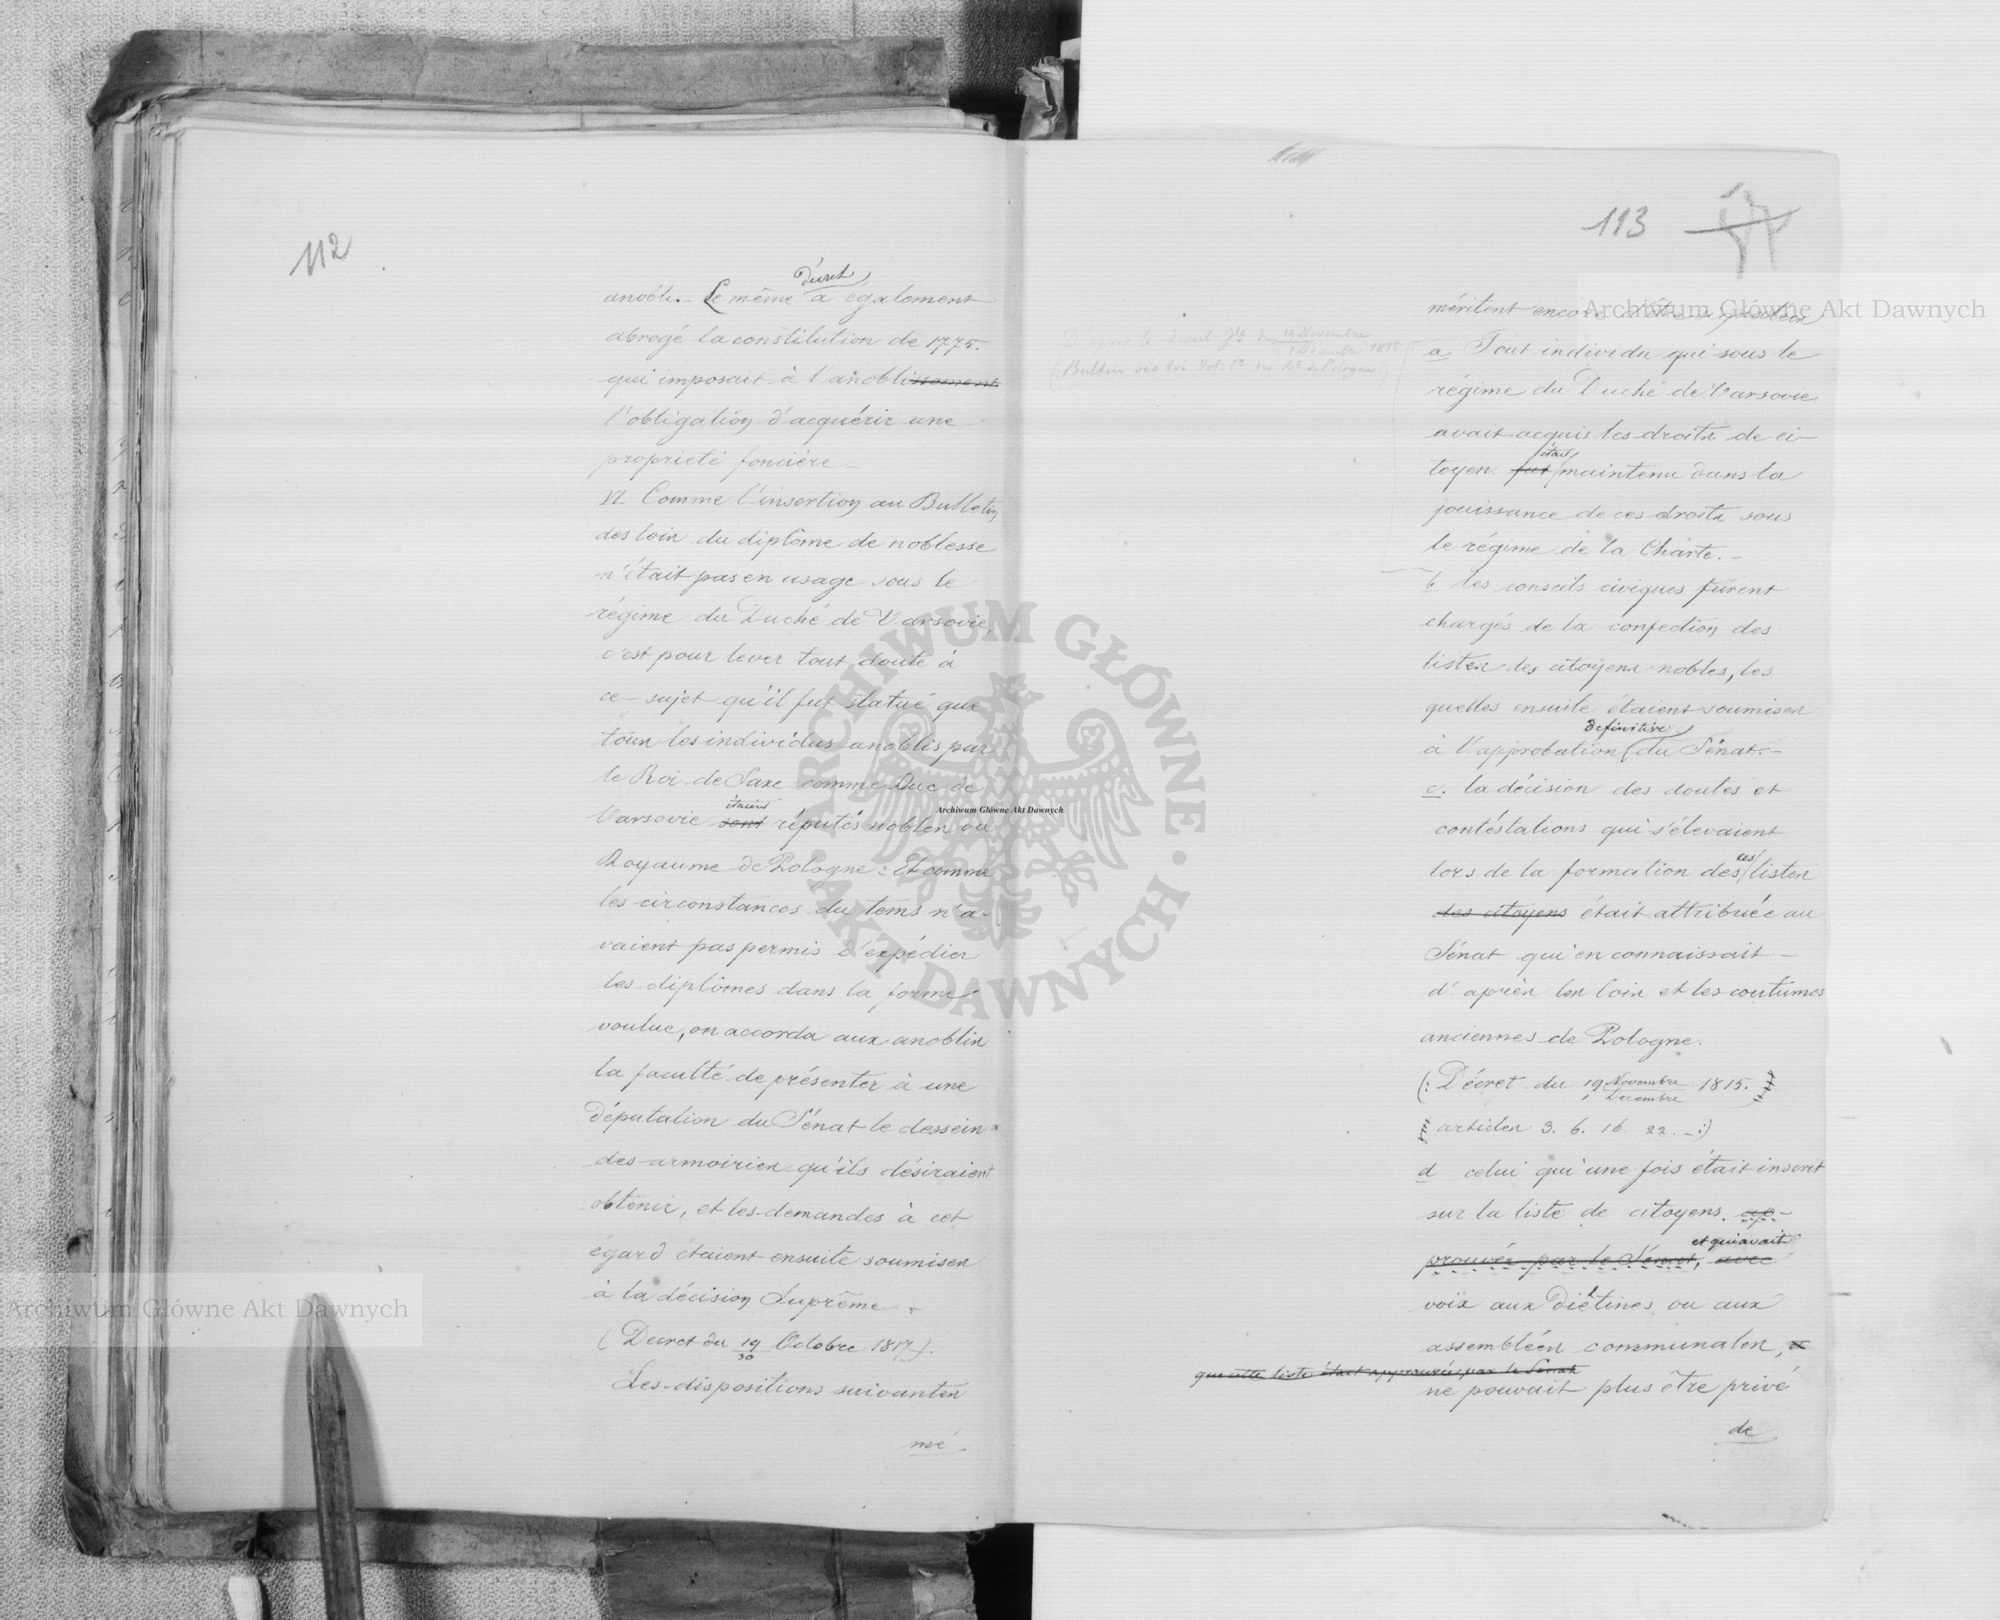 112
décret
anobli. Le même a également
abrogé la constitution de 1775.
qui imposait à l'anoblissement
l'obligation d'acquérir une
proprieté foncière
VI Comme l'insertion au Bulletin
des loix du diplôme de noblesse
n'était pas en usage sous le
régime du Duché de Varsovie,
c'est pour lever tout doute à
ce sujet qu'il fut statué que
tous les individus anoblis par
le Roi de Saxe comme Duc de
étaient
Varsovie sont réputés nobles du
Royaume de Pologne: Et comme
les circonstances du tems n'a-
vaient pas permis d'expédier
les diplômes dans la forme
voulue, on accorda aux anoblis
la faculté de présenter à une
députation du Sénat le dessein
des armoiries qu'ils désiraient
obtenir, et les demandes à cet
égard étaient ensuite soumises
à la décision Suprême
(Decret du 19/30 Octobre 1817).
Les dispositions suivantes
mé
113
méritent encore d'être
D'après le décret du 19 Novembre
1 Décembre 1815
(Bulletin des loi Vol: 1r du Rme de Pologne)
a Tout individu qui sous le
régime du Duché de Varsovie
avait acquis les droits de ci-
était
toyen fut maintenu dans la
jouissance de ces droits sous
le régime de la Charte.
b. les conseils civiques furent
chargés de la confection des
listes des citoyens nobles, les
quelles ensuite étaient soumises
définitive
à l'approbation du Sénat.
c. la décision des doutes et
contéstations qui s'élevaient
ces
lors de la formation des listes
des citoyens était attribuée au
Sénat qui en connaissait
d'après les loix et les coutumes
anciennes de Pologne.
(: Décret du 19 Novembre 1815.
1 Decembre
articles 3. 6. 16. 22. :)
d celui qui une fois était inscrit
sur la liste de citoyens. ap-
et qui avait
prouvée par le Sénat, avec
voix aux Diétines ou aux
assemblées communales,
que cette liste était approuvée par le Senat
ne pouvait plus être privé
de
ARCHIWUM GŁÓWNE AKT DAWNYCH
Archiwum Główne Akt Dawnych
Archiwum Główne Akt Dawnych
Archiwum Główne Akt Dawnych